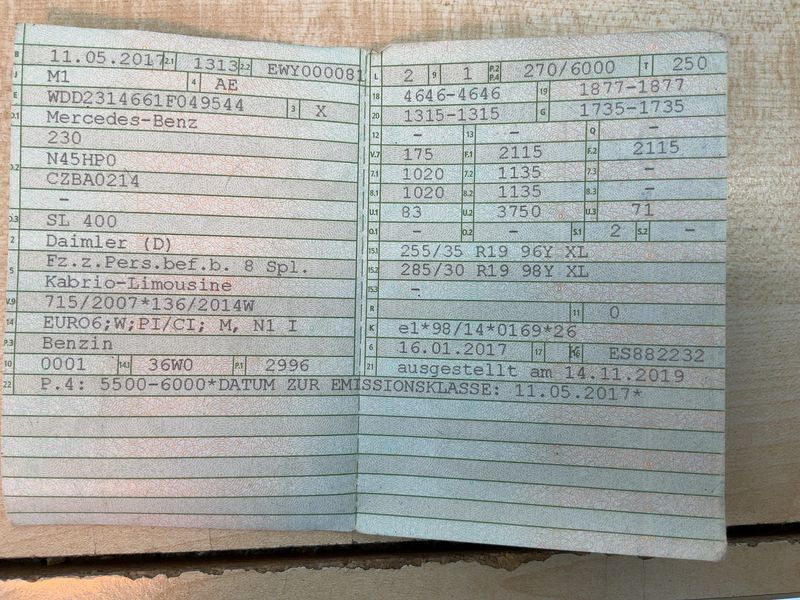 B 11.05.2017 2.1 1313 2.2 EWY000081
J M1 4 AE
E WDD2314661F049544 3 X
D.1 Mercedes-Benz
230
D.2 N45HP0
CZBA0214
–
D.3 SL 400
2 Daimler (D)
5 Fz.z.Pers.bef.b. 8 Spl.
Kabrio-Limousine
V.9 715/2007*136/2014W
14 EURO6;W;PI/CI; M, N1 I
P.3 Benzin
10 0001 14.1 36W0 P.1 2996
22 P.4: 5500-6000*DATUM ZUR EMISSIONSKLASSE: 11.05.2017*
L 2 9 1 P.2 P.4 270/6000 T 250
18 4646-4646 19 1877-1877
20 1315-1315 G 1735-1735
12 – 13 – Q –
V.7 175 F.1 2115 F.2 2115
7.1 1020 7.2 1135 7.3 –
8.1 1020 8.2 1135 8.3 –
U.1 83 U.2 3750 U.3 71
O.1 – O.2 – S.1 2 S.2 –
15.1 255/35 R19 96Y XL
15.2 285/30 R19 98Y XL
15.3 –
R 11 0
K e1*98/14*0169*26
6 16.01.2017 17 K 16 ES882232
21 ausgestellt am 14.11.2019